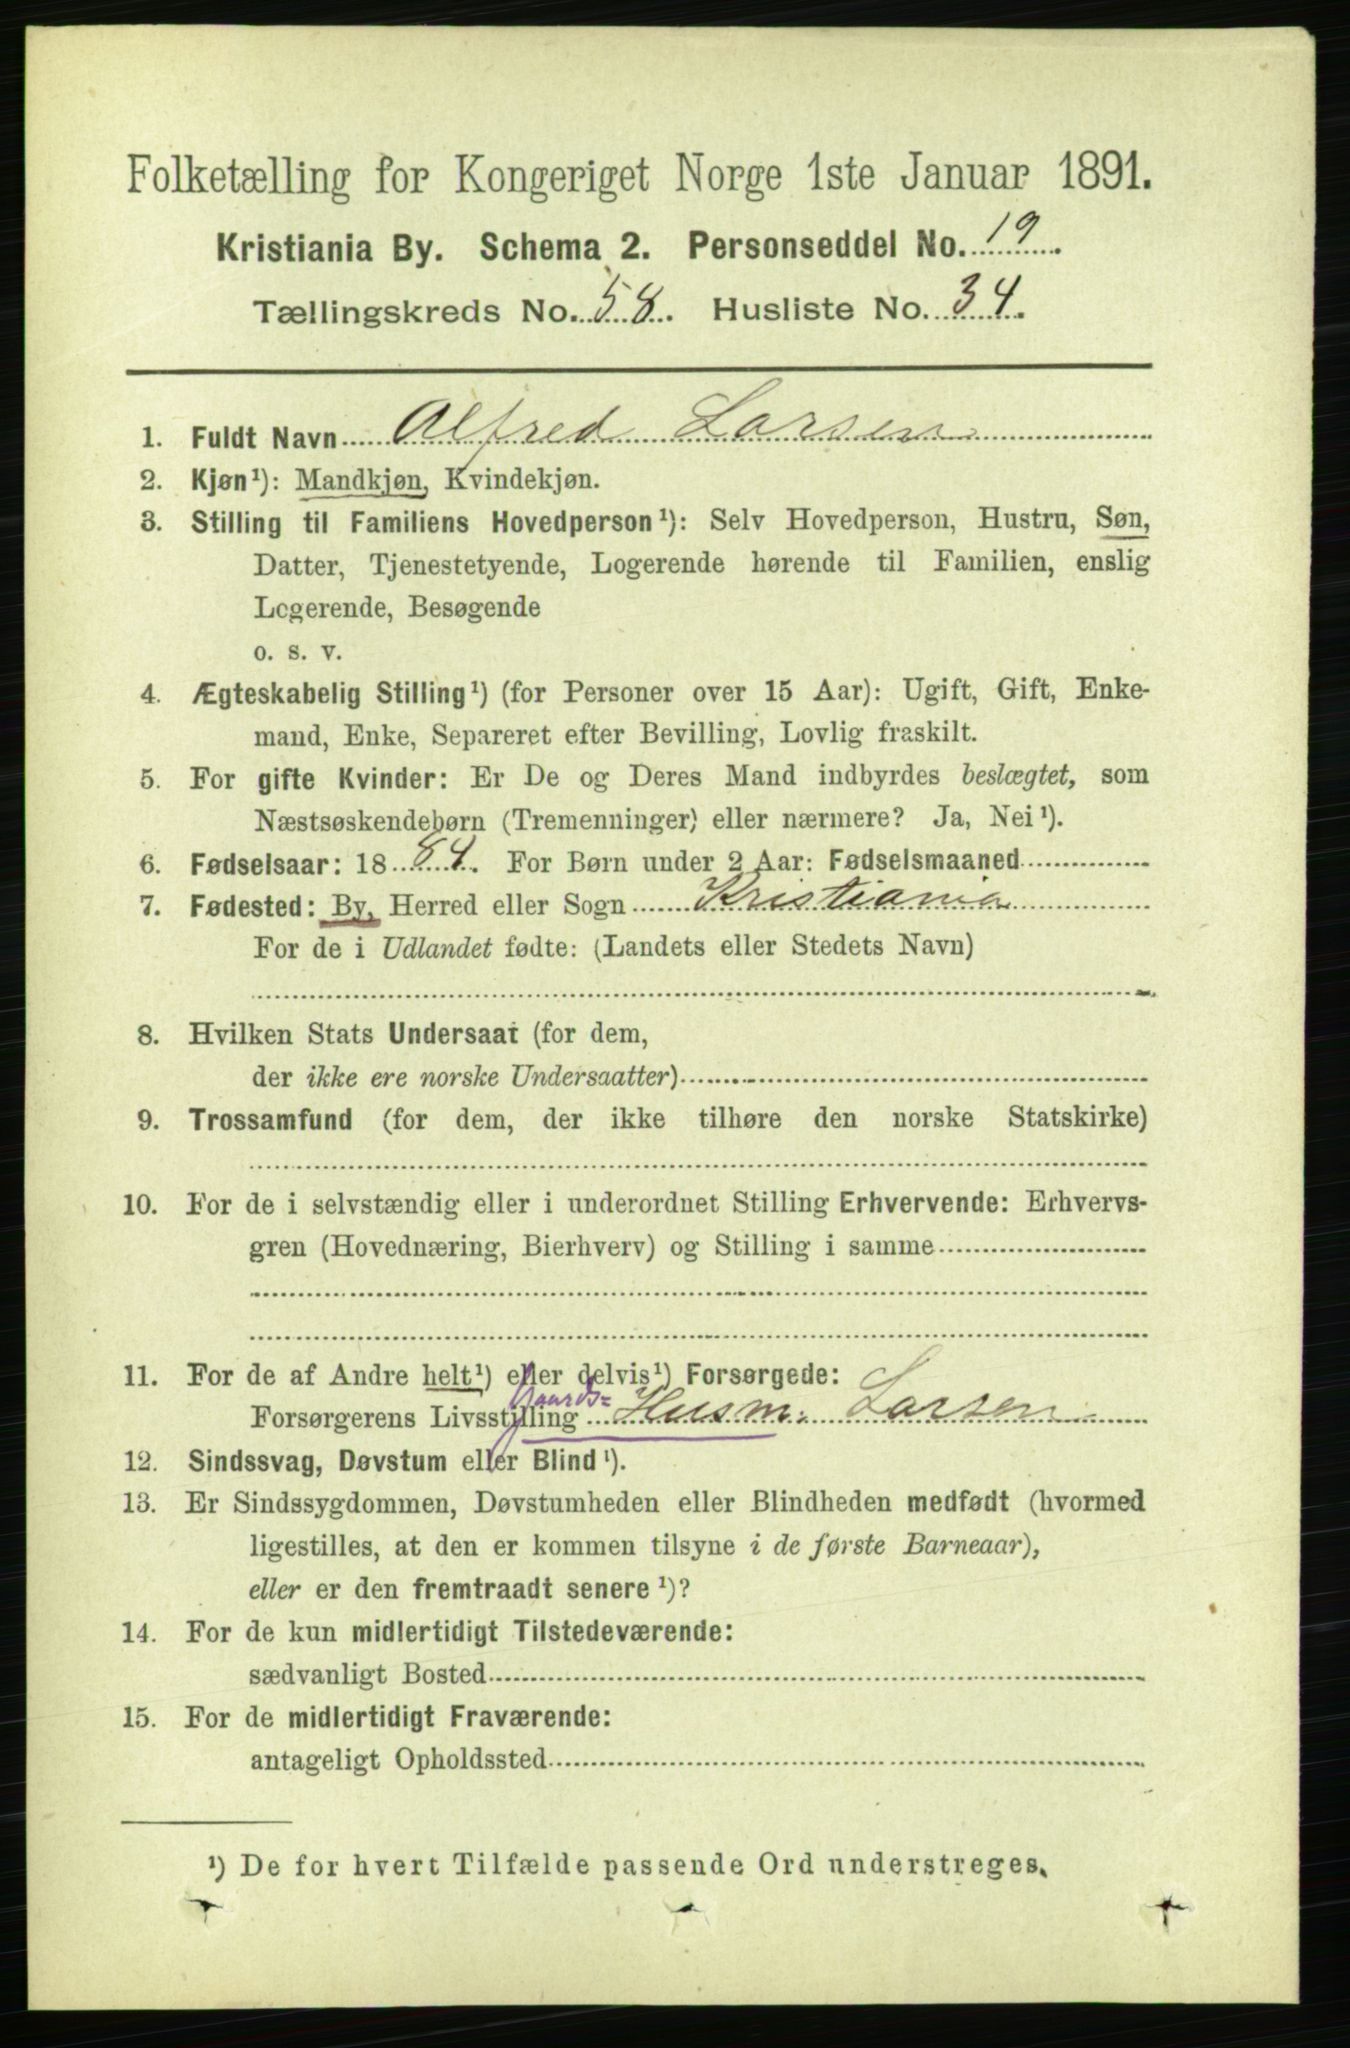 Folketælling for Kongeriget Norge 1ste Januar 1891.
Kristiania By. Schema 2. Personseddel No. 19.
Tællingskreds No. 58. Husliste No. 34.
1. Fuldt Navn Alfred Larsen
2. Kjøn¹): Mandkjøn, Kvindekjøn.
3. Stilling til Familiens Hovedperson¹): Selv Hovedperson, Hustru, Søn,
Datter, Tjenestetyende, Logerende hørende til Familien, enslig
Logerende, Besøgende
o. s. v.
4. Ægteskabelig Stilling¹) (for Personer over 15 Aar): Ugift, Gift, Enke-
mand, Enke, Separeret efter Bevilling, Lovlig fraskilt.
5. For gifte Kvinder: Er De og Deres Mand indbyrdes beslægtet, som
Næstsøskendebørn (Tremenninger) eller nærmere? Ja, Nei¹).
6. Fødselsaar: 1884. For Børn under 2 Aar: Fødselsmaaned
7. Fødested: By, Herred eller Sogn Kristiania
For de i Udlandet fødte: (Landets eller Stedets Navn)
8. Hvilken Stats Undersaat (for dem,
der ikke ere norske Undersaatter)
9. Trossamfund (for dem, der ikke tilhøre den norske Statskirke)
10. For de i selvstændig eller i underordnet Stilling Erhvervende: Erhvervs-
gren (Hovednæring, Bierhverv) og Stilling i samme
11. For de af Andre helt¹) eller delvis¹) Forsørgede:
Forsørgerens Livsstilling Gaards= Husm. Larsen
12. Sindssvag, Døvstum eller Blind¹).
13. Er Sindssygdommen, Døvstumheden eller Blindheden medfødt (hvormed
ligestilles, at den er kommen tilsyne i de første Barneaar),
eller er den fremtraadt senere¹)?
14. For de kun midlertidigt Tilstedeværende:
sædvanligt Bosted
15. For de midlertidigt Fraværende:
antageligt Opholdssted
¹) De for hvert Tilfælde passende Ord understreges.